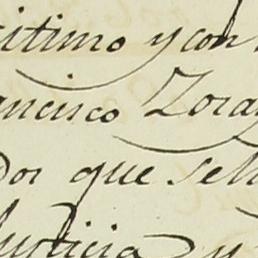 itimo y con
ancisco Zora
dor que se
Justicia y